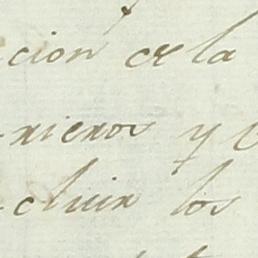 cion de la
nieros y
cluir los